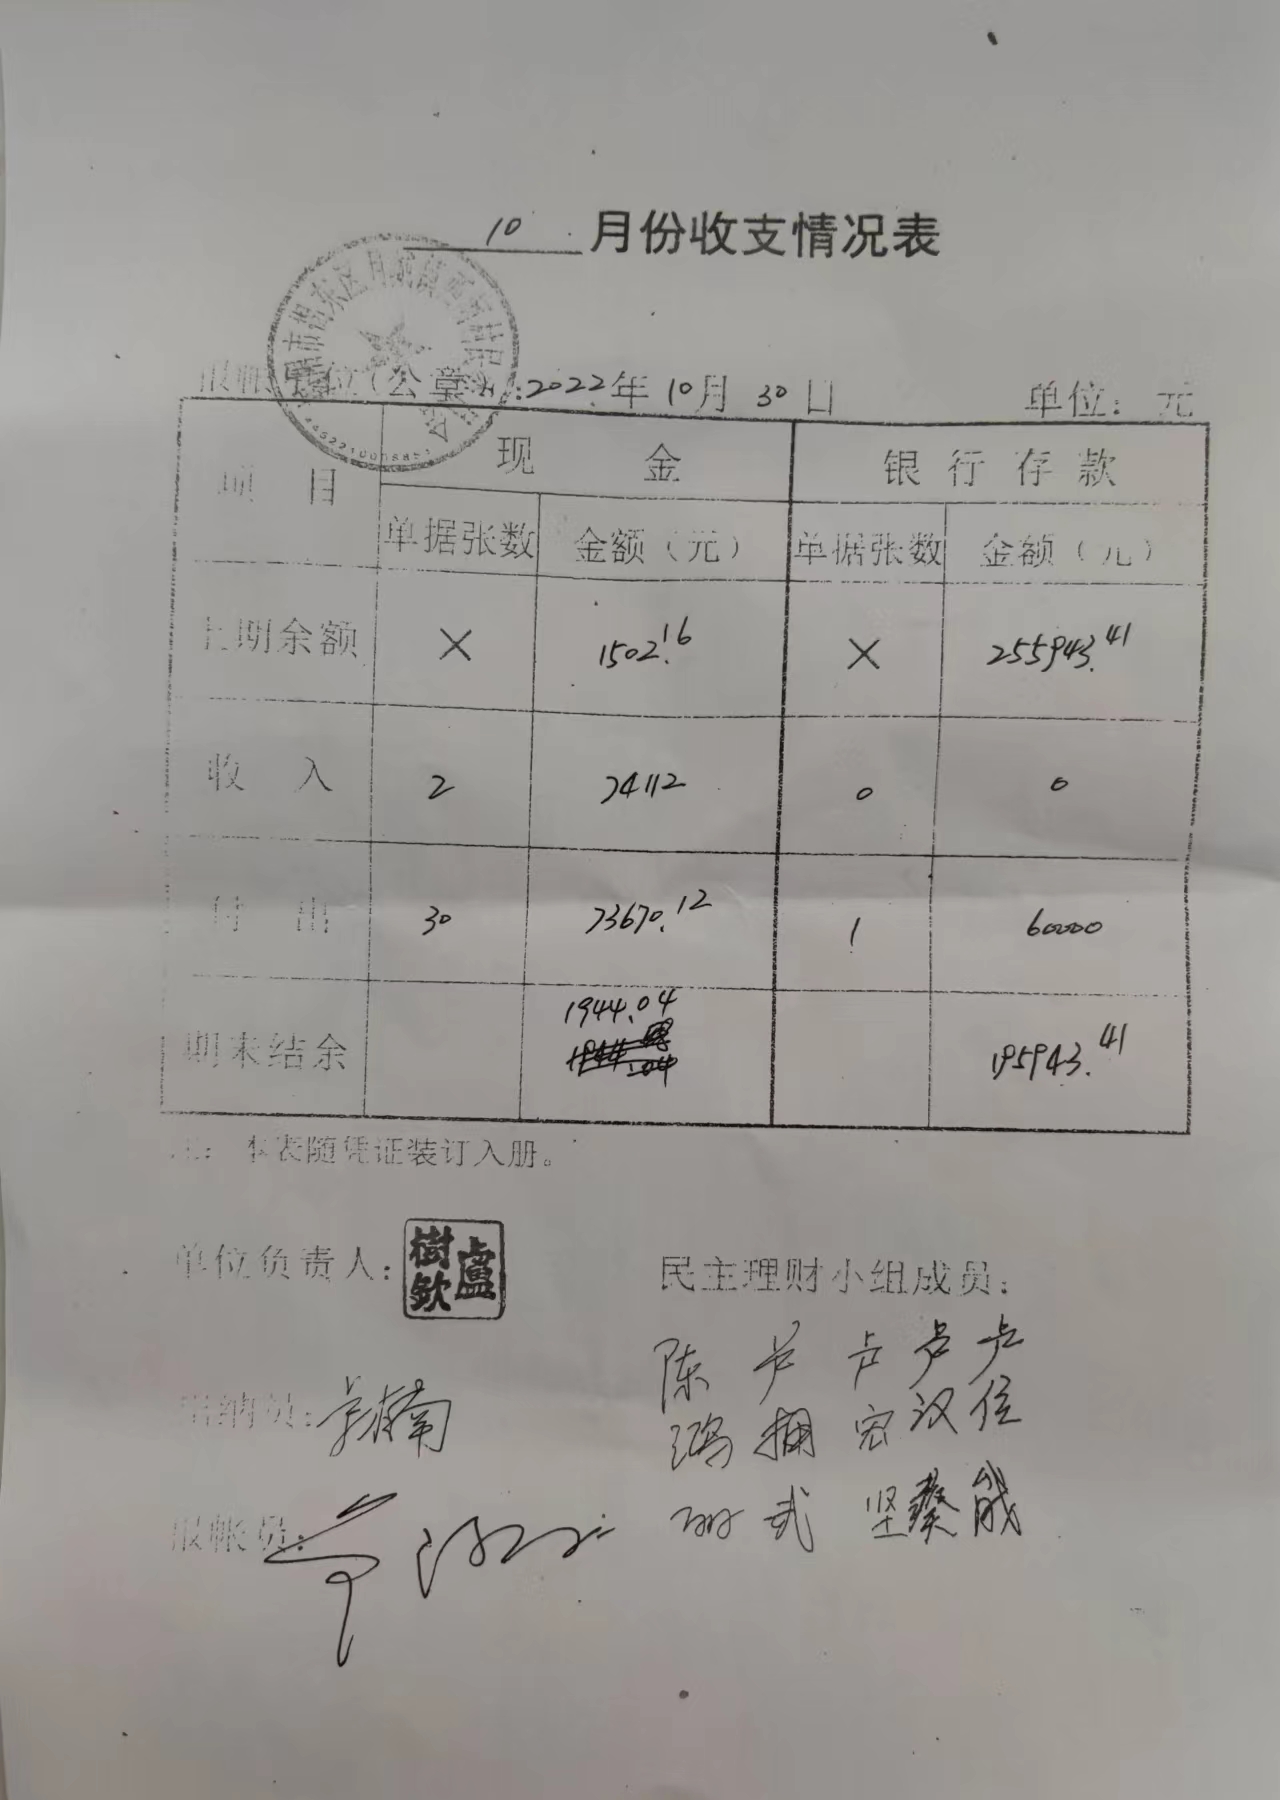 10 月份收支情况表
报帐单位(公章):2022年10月30日 单位：元
项 目 现 金 银 行 存 款
单据张数 金额（元） 单据张数 金额（元）
上期余额 × 1502.16 × 255943.41
收 入 2 74112 0 0
付 出 30 73670.12 1 60000
期末结余 1944.04 195943.41
注：本表随凭证装订入册。
单位负责人： 盧樹欽 民主理财小组成员：
出纳员：
报帐员：